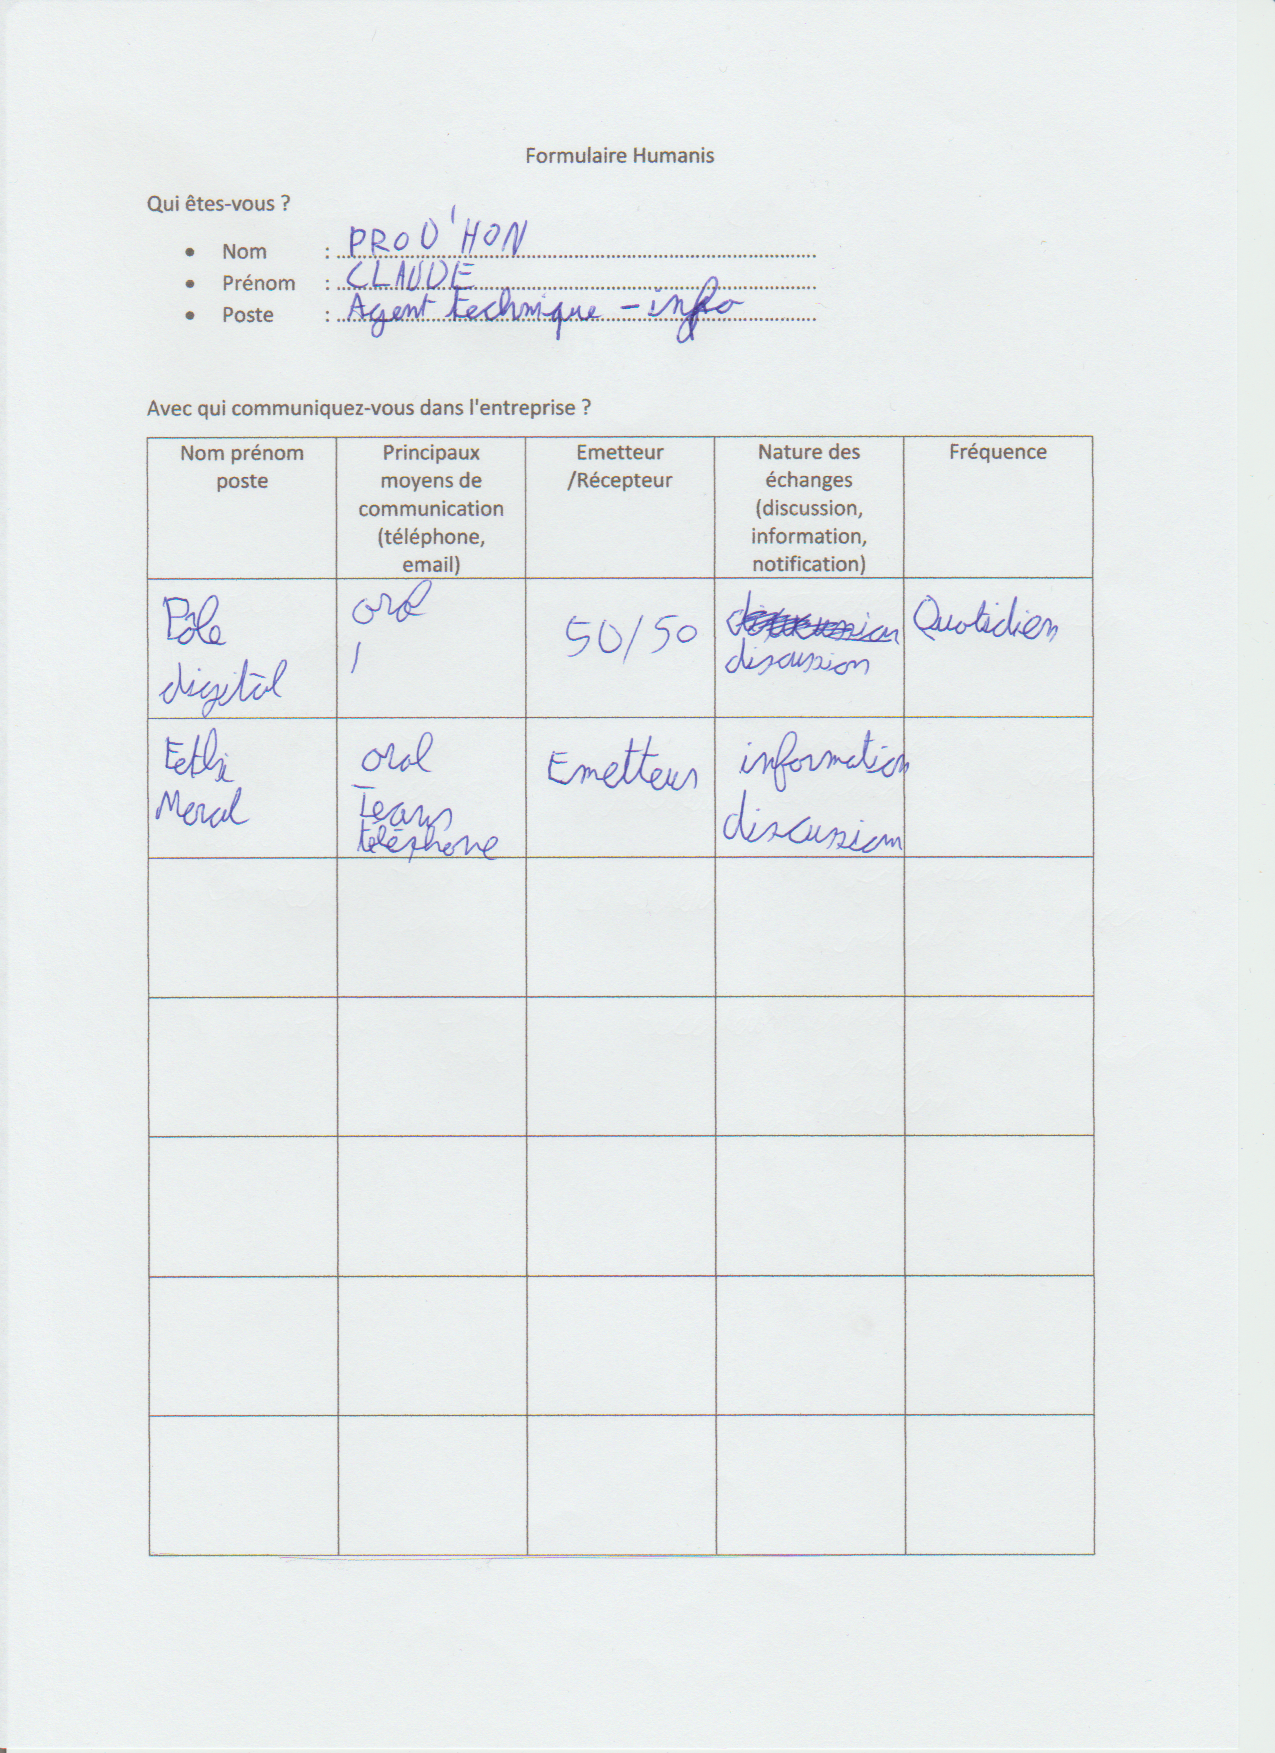 Formulaire Humanis
Qui êtes-vous ?
• Nom : PROD'HON
• Prénom : CLAUDE
• Poste : Agent technique - info
Avec qui communiquez-vous dans l'entreprise ?
Nom prénom
poste
Principaux
moyens de
communication
(téléphone,
email)
Emetteur
/Récepteur
Nature des
échanges
(discussion,
information,
notification)
Fréquence
Pôle
digital
oral
/
50/50
discussion
Quotidien
Meral
oral
Teams
téléphone
Emetteur
information
discussion